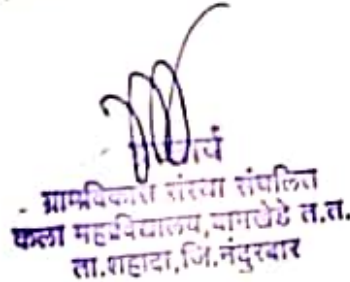 ग्रामविकास संस्था संचलित
कला महाविद्यालय, बामखेडे त.त.
ता.शहादा,जि.नंदुरबार